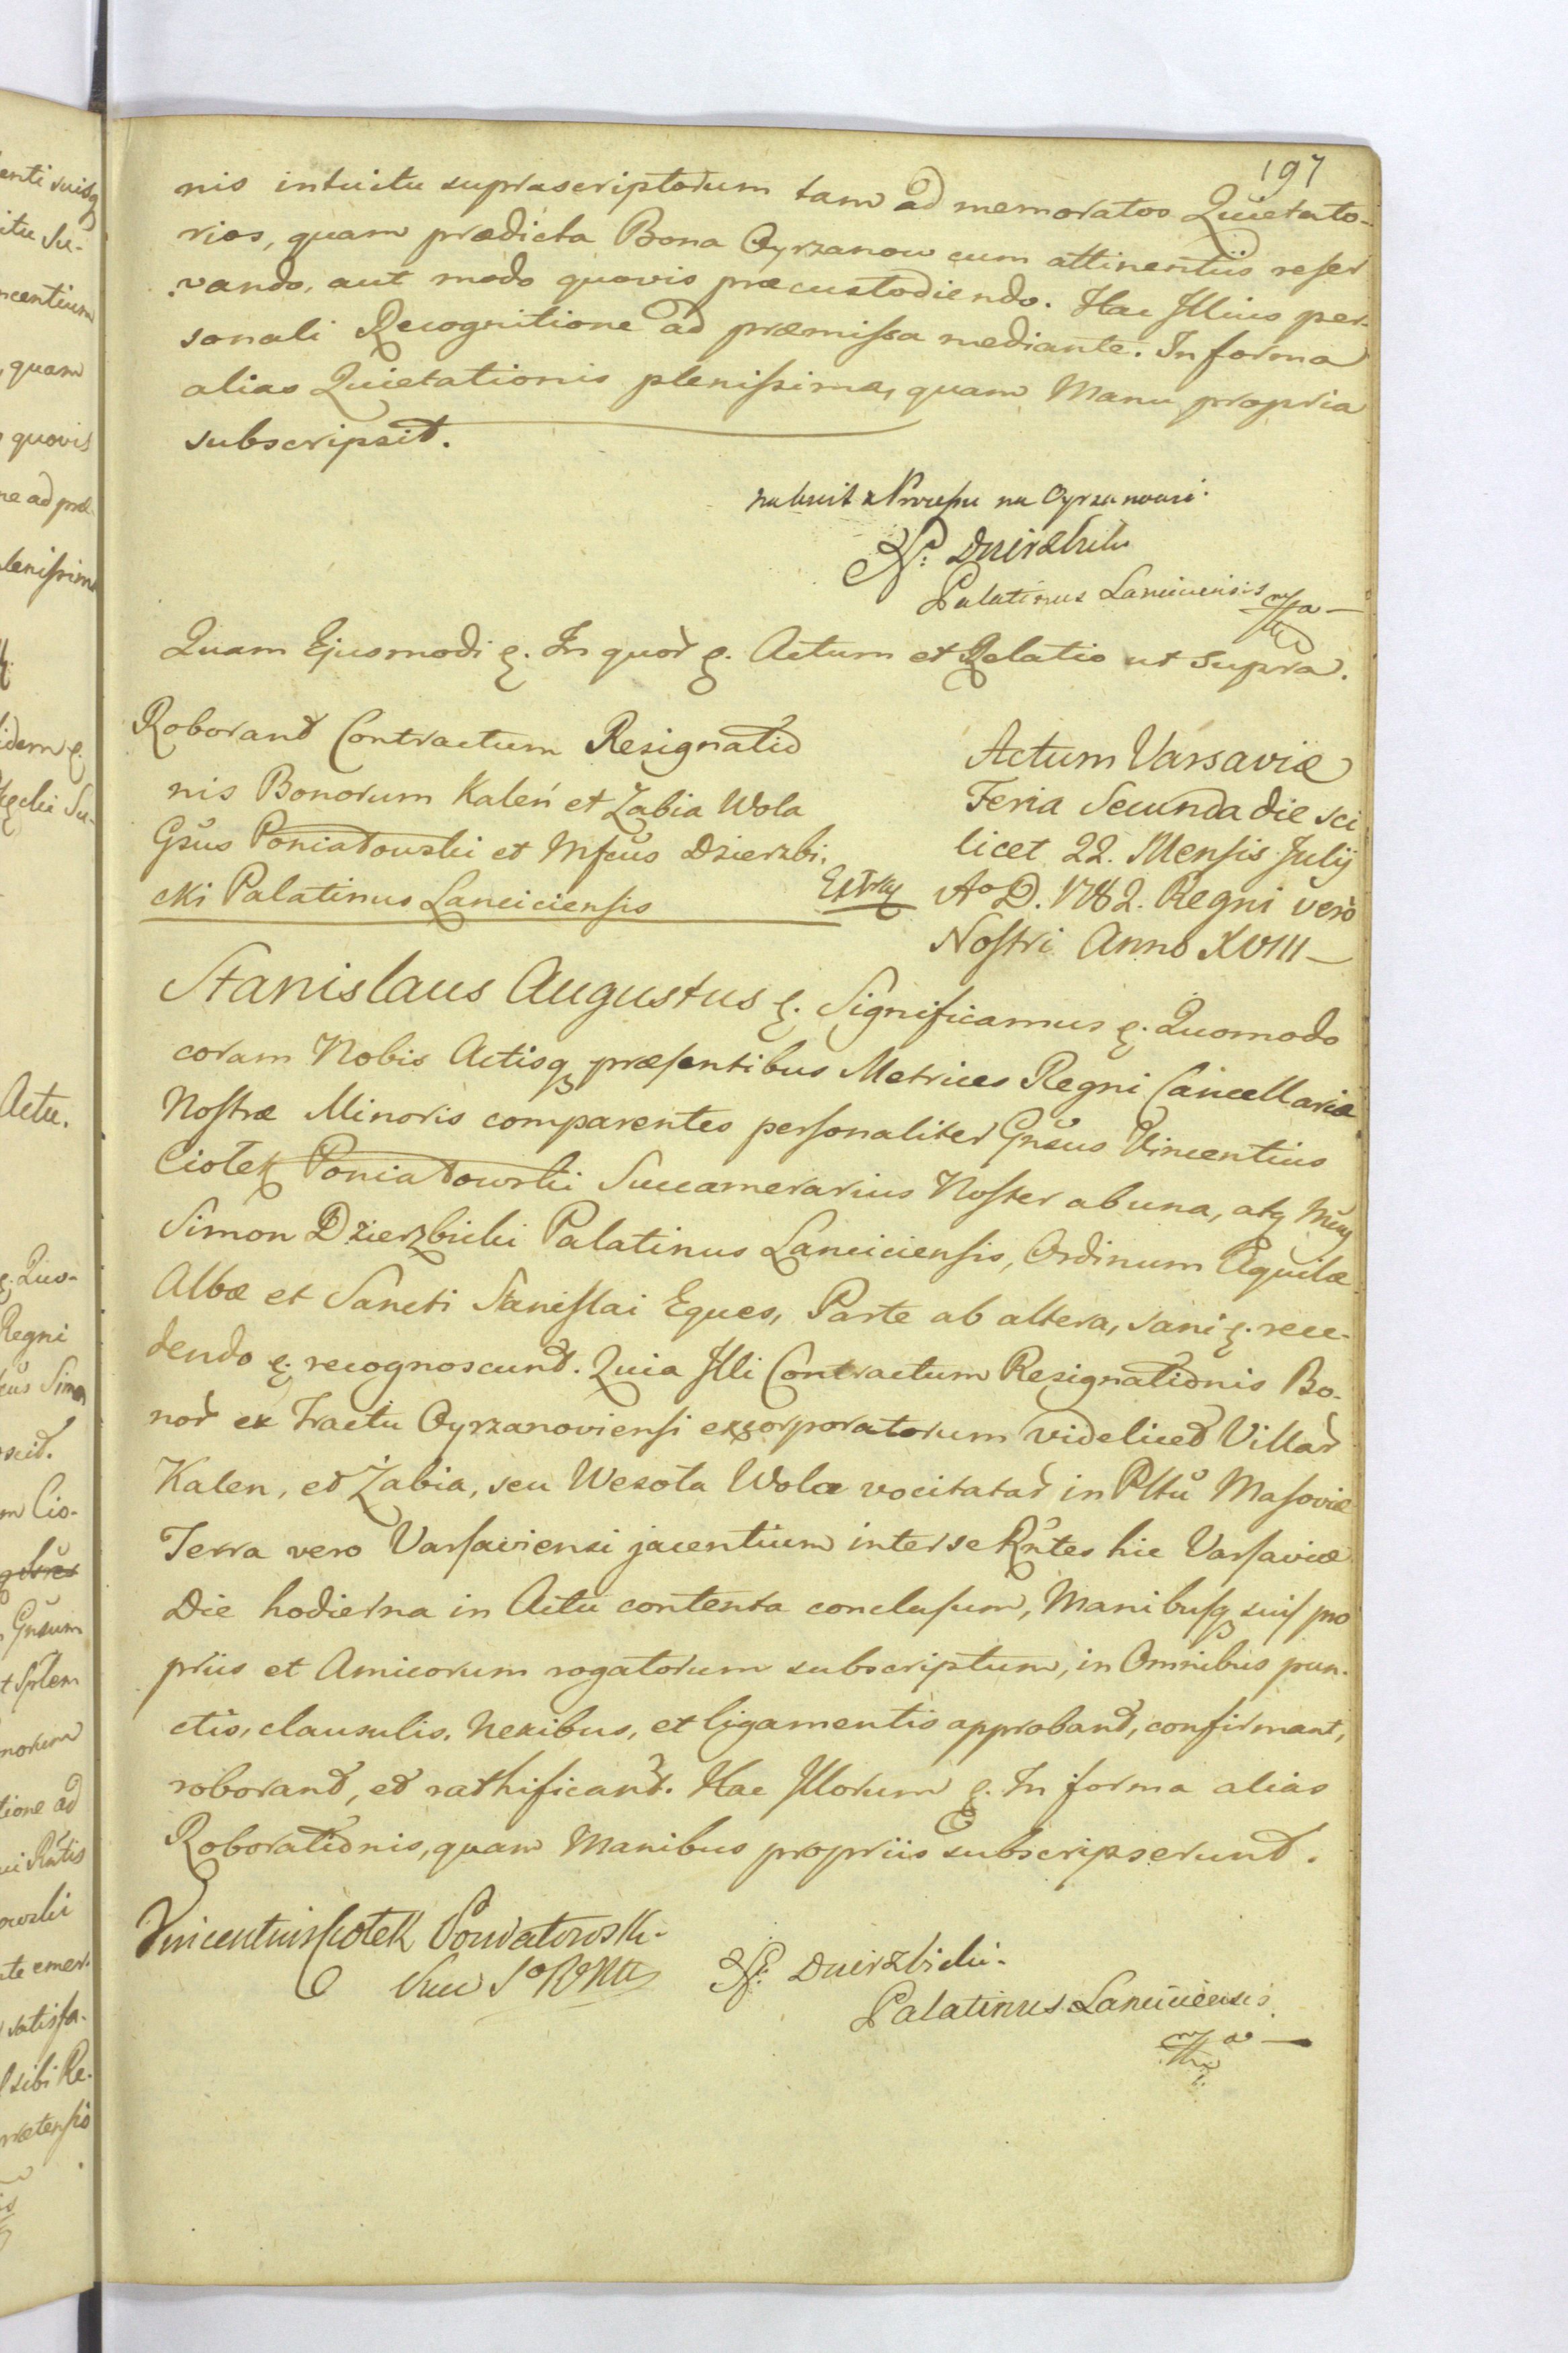 197
nis intuitu suprascriptorum tam ad memoratos Quietato-
rios, quam prædicta Bona Oyrzanow cum attinentiis reser
vando, aut modo quovis præcustodiendo. Hac Illius per-
sonali Recognitione ad præmissa mediante. In forma
alias Quietationis plenissima, quam Manu propria
subscripsit.
na Oyrzanowi
Palatinus Lanciciensis mpa
Quam Ejusmodi &. In quor &. Actum et Relatio ut supra.
Roborant Contractum Resignatio
nis Bonorum Kaleń et Zabia Wola
Gsŭs Poniatowski et Mfcŭs Dzierzbi,
cki Palatinus Lanciciensis
Actum Varsaviæ
Feria Secunda die sci
licet 22. Mensis Julij
Ao D. 1782. Regni verò
Nostri Anno XVIII
Stanislaus Augustus &. Significamus &. Quomodo
coram Nobis Actisq præsentibus Metrices Regni Cancellariæ
Nostræ Minoris comparentes personaliter Gnsus Vincentius
Ciołek Poniatowski Succamerarius Noster ab una, atq
Simon Dzierzbicki Palatinus Lanciciensis, Ordinum Aquilæ
Albæ et Sancti Stanislai Eques, Parte ab altera, sani &. rece-
dendo &. recognoscunt. Quia Illi Contractum Resignationis Bo-
nor ex Tractu Oyrzanoviensi excorporatorum videlicet Villar
Kalen, et Żabia, seu Wesoła Wola vocitatar in Pltŭ Masoviæ
Terra vero Varsaviensi jacentium inter se Rntes hic Varsaviæ
Die hodierna in Actu contenta conclusum, Manibusq suis pro
priis et Amicorum rogatorum subscriptum, in Omnibus pun-
ctis, clausulis, Nexibus, et ligamentis approbant, confirmant,
roborant, et rathificant. Hac Illorum &. In forma alias
Roborationis, quam Manibus propriis subscripserunt.
Vincentius Ciołek Poniatowski
S: Dzierzbicki
Palatinus Lanciciensis
mpa